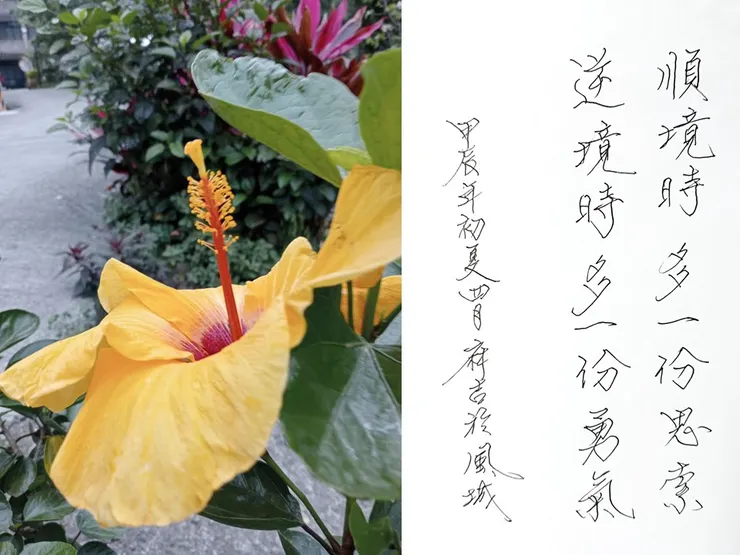 順境時多一份思索
逆境時多一份勇氣
甲辰年初夏四月 祥吉於風城